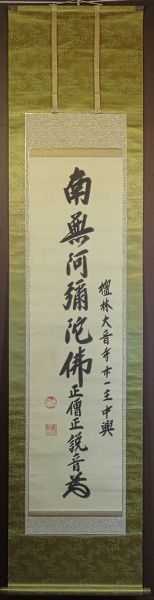 檀林大音寺廿一主中興
南無阿彌陀佛
正僧正説音